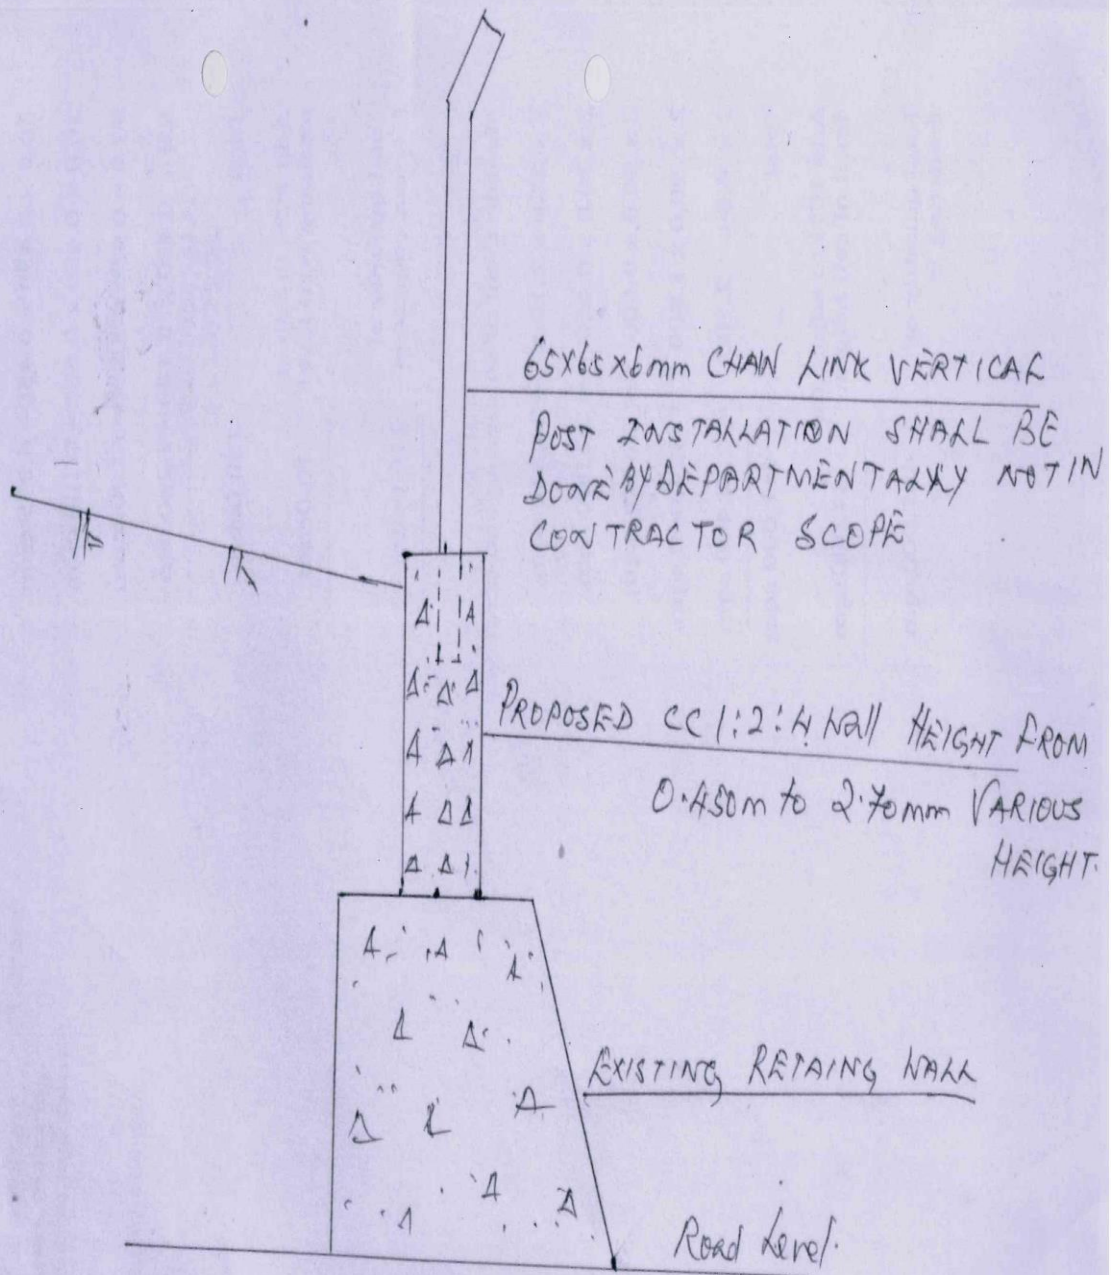 65x65x6mm CHAN LINK VERTICAL
POST INSTALLATION SHALL BE
DONE BY DEPARTMENTALLY NOT IN
CONTRACTOR SCOPE
PROPOSED CC 1:2:4 Wall HEIGHT FROM
0.450m to 2.70mm VARIOUS
HEIGHT.
EXISTING RETAING WALL
Road Level.